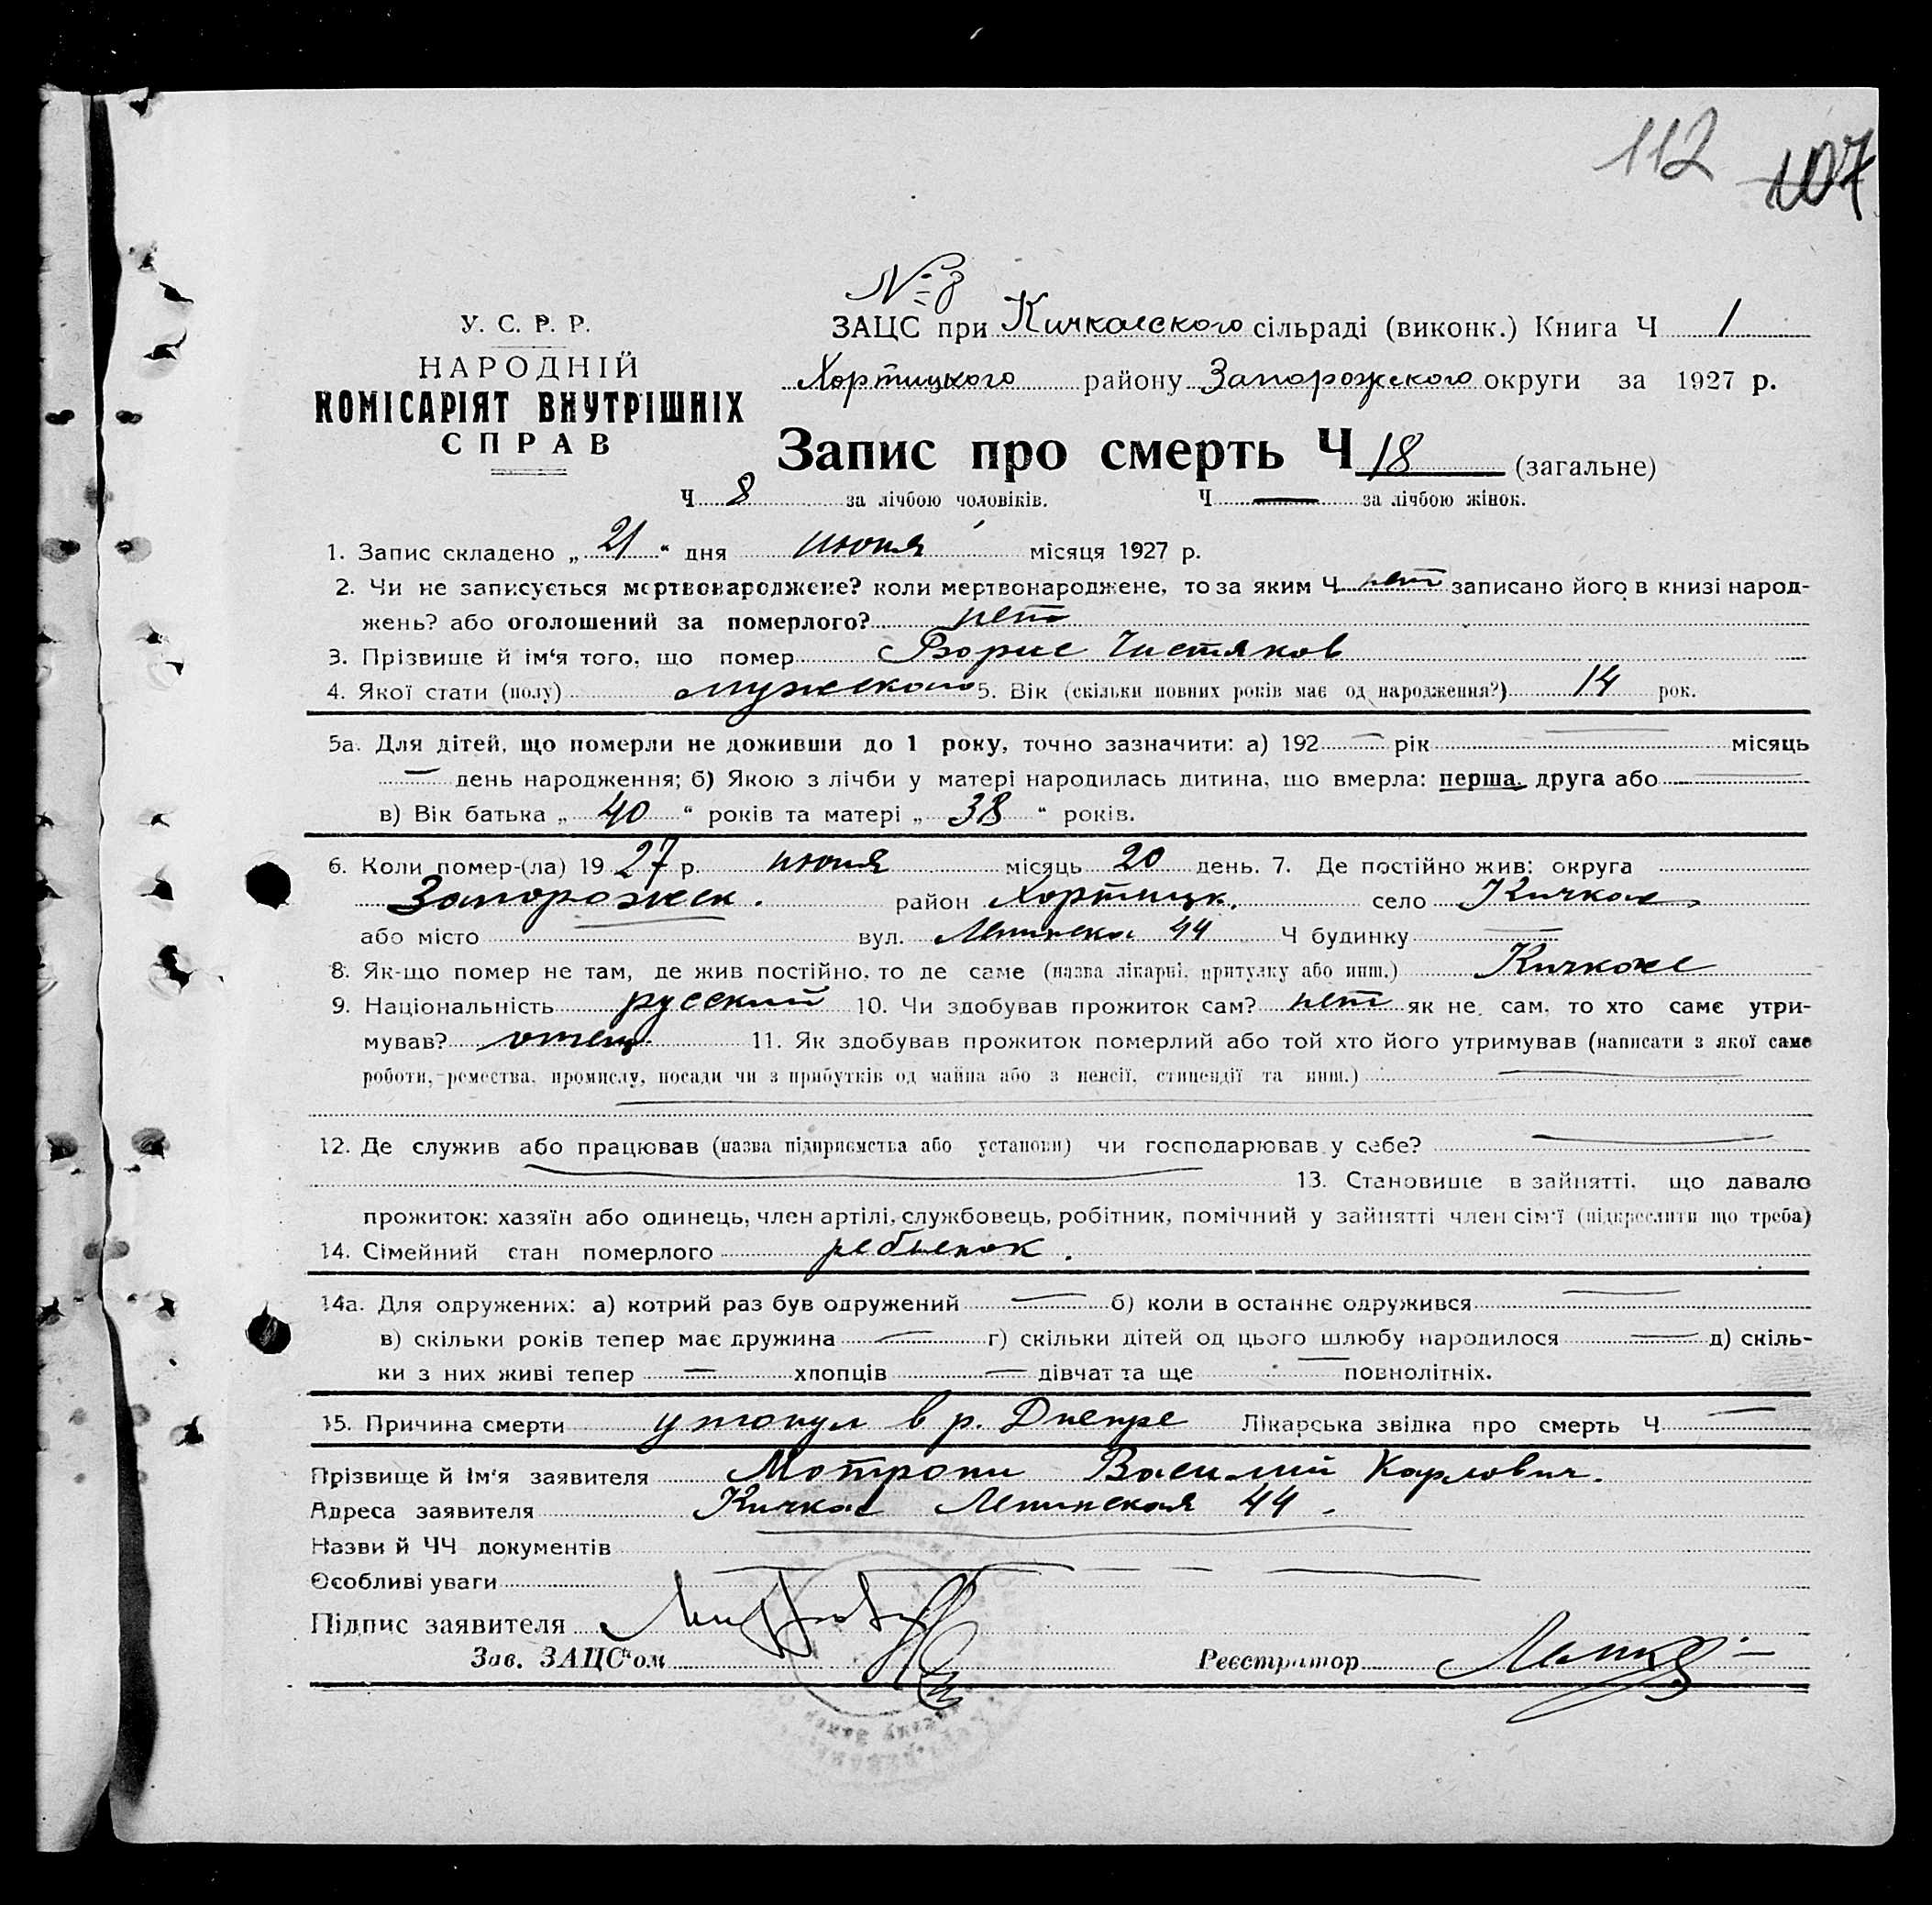 112 107
№ 8
У. С. Р. Р.
НАРОДНІЙ
КОМІСАРІЯТ ВНУТРІШНІХ
СПРАВ
ЗАЦС при Кичкасского сільраді (виконк.) Книга Ч 1
Хортицкого району Запорожского округи за 1927 р.
Запис про смерть Ч 18 (загальне)
Ч 8 за лічбою чоловіків. Ч — за лічбою жінок.
1. Запис складено „ 21 “ дня июня місяця 1927 р.
2. Чи не записується мертвонароджене? коли мертвонароджене, то за яким Ч нет записано його в книзі народ-
жень? або оголошений за померлого? нет
3. Прізвище й ім‘я того, що помер Борис Чистяков
4. Якої стати (полу) мужеского 5. Вік (скільки повних років має од народження?) 14 рок.
5а. Для дітей, що померли не доживши до 1 року, точно зазначити: а) 192 — рік — місяць
— день народження; б) Якою з лічби у матері народилась дитина, що вмерла: перша, друга або —
в) Вік батька „ 40 “ років та матері „ 38 “ років.
6. Коли помер-(ла) 19 27 р. июня місяць 20 день. 7. Де постійно жив: округа
Запорожск. район Хортицк. село Кичкас
або місто — вул. Ленинска 44 Ч будинку —
8. Як-що помер не там, де жив постійно, то де саме (назва лікарні, притулку або инш.) Кичкасе
9. Національність русский 10. Чи здобував прожиток сам? нет як не сам, то хто саме утри-
мував? отец. 11. Як здобував прожиток померлий або той хто його утримував (написати з якої саме
роботи, ремества, промислу, посади чи з прибутків од майна або з пенсії, стипендії та инш.) —
12. Де служив або працював (назва підприємства або установи) чи господарював у себе? —
— 13. Становище в зайнятті, що давало
прожиток: хазяїн або одинець, член артілі, службовець, робітник, помічний у зайнятті член сім‘ї (підкреслити що треба)
14. Сімейний стан померлого ребьенок.
14а. Для одружених: а) котрий раз був одружений — б) коли в останнє одружився —
в) скільки років тепер має дружина — г) скільки дітей од цього шлюбу народилося — д) скіль-
ки з них живі тепер — хлопців — дівчат та ще — повнолітніх.
15. Причина смерти утонул в р. Днепре Лікарська звідка про смерть Ч —
Прізвище й ім‘я заявителя Мотрони Василий Карлович.
Адреса заявителя Кичкас Ленинская 44.
Назви й ЧЧ документів —
Особливі уваги —
Підпис заявителя
Зав. ЗАЦС‘ом Реєстратор